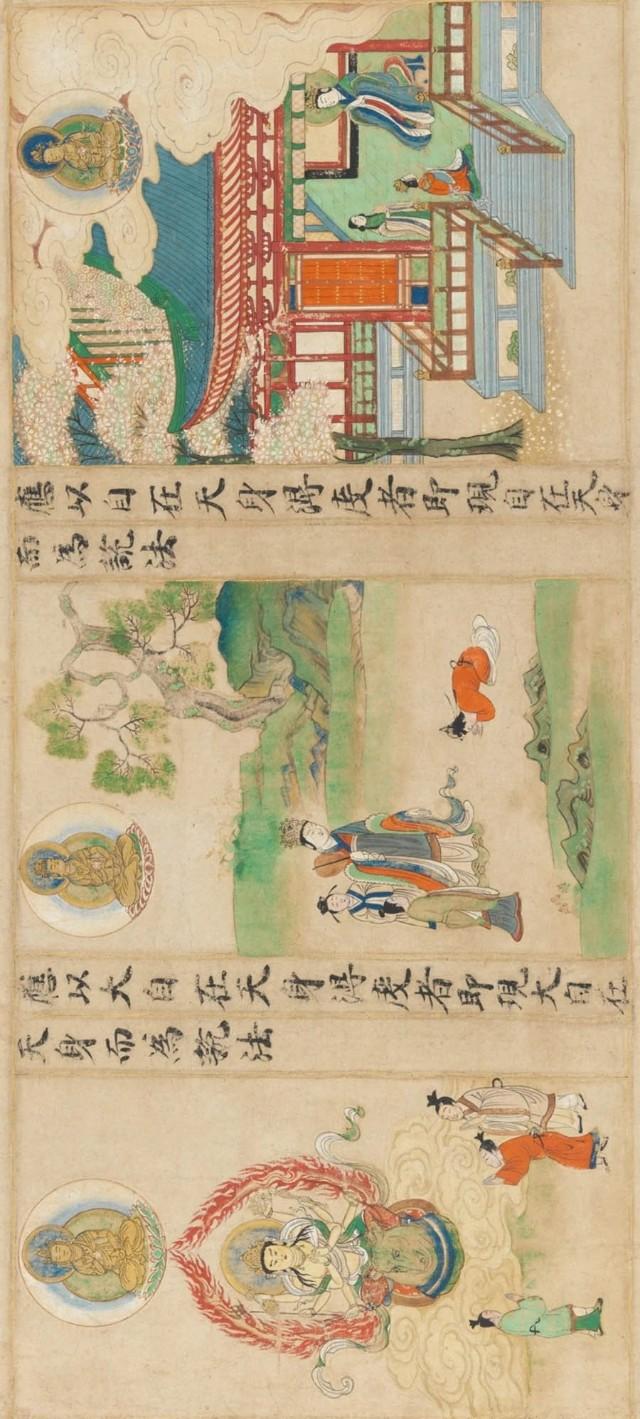 應以自在天身得度者即現自在天身
而為說法
應以大自在天身得度者即現大自在
天身而為說法